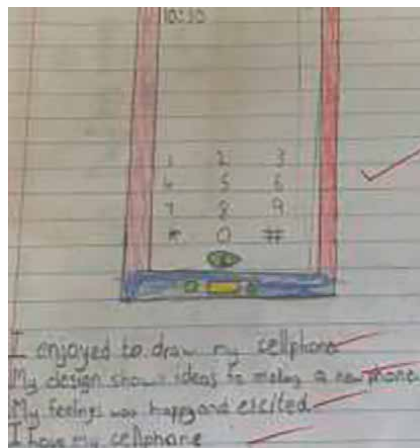 10:30
1 2 3
4 5 6
7 8 9
* 0 #
I enjoyed to draw my cellphone
My design shows ideas to making a new phone
My feelings was happy and excited
I have my cellphone